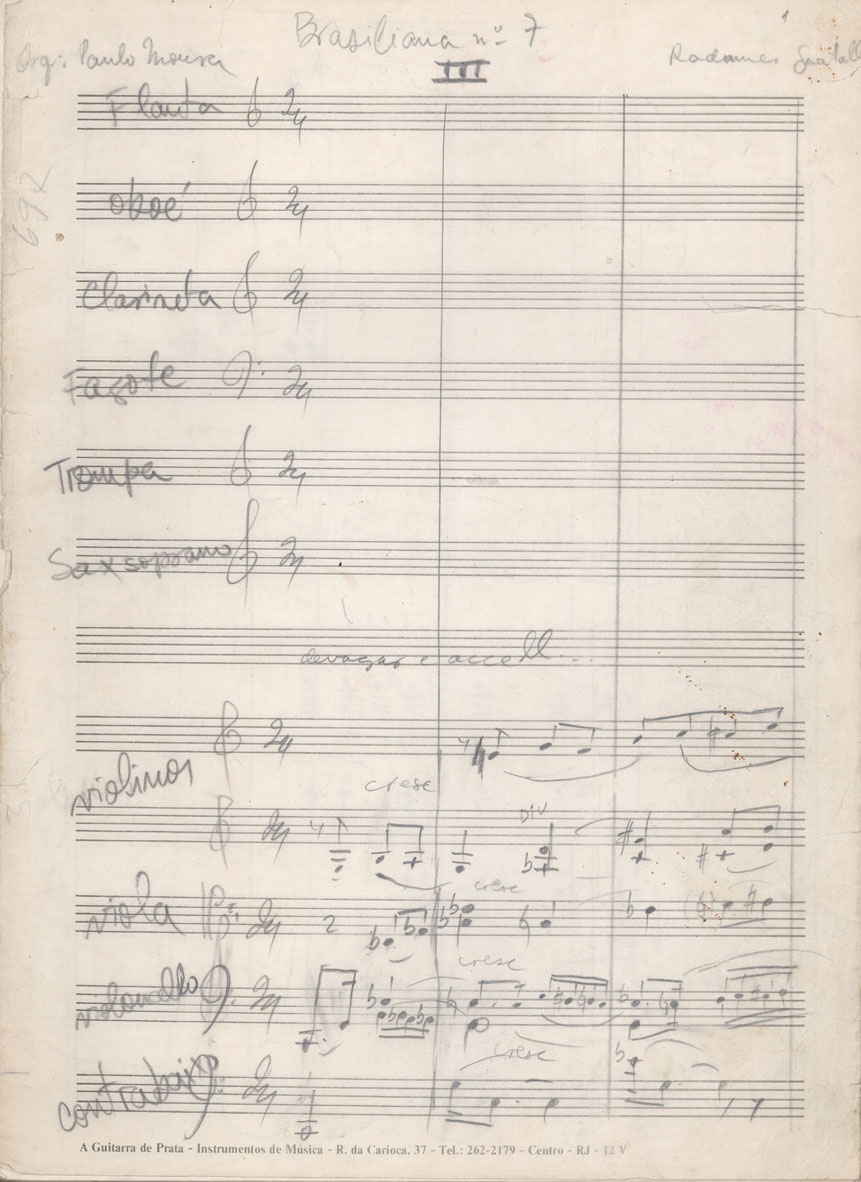 Brasiliana nº 7
Orq: Paulo Moura
Radames Gnatalli
III
Flauta 2/4
oboé 2/4
Clarineta 2/4
Fagote 2/4
Trompa 2/4
Sax soprano 2/4
692
devagar e accell...
violinos 2/4
cresc
2/4
Div
viola 2/4
cresc
violoncello 2/4
cresc
contrabaixo 2/4
cresc
A Guitarra de Prata - Instrumentos de Música - R. da Carioca, 37 - Tel.: 262-2179 - Centro - RJ - 12 V